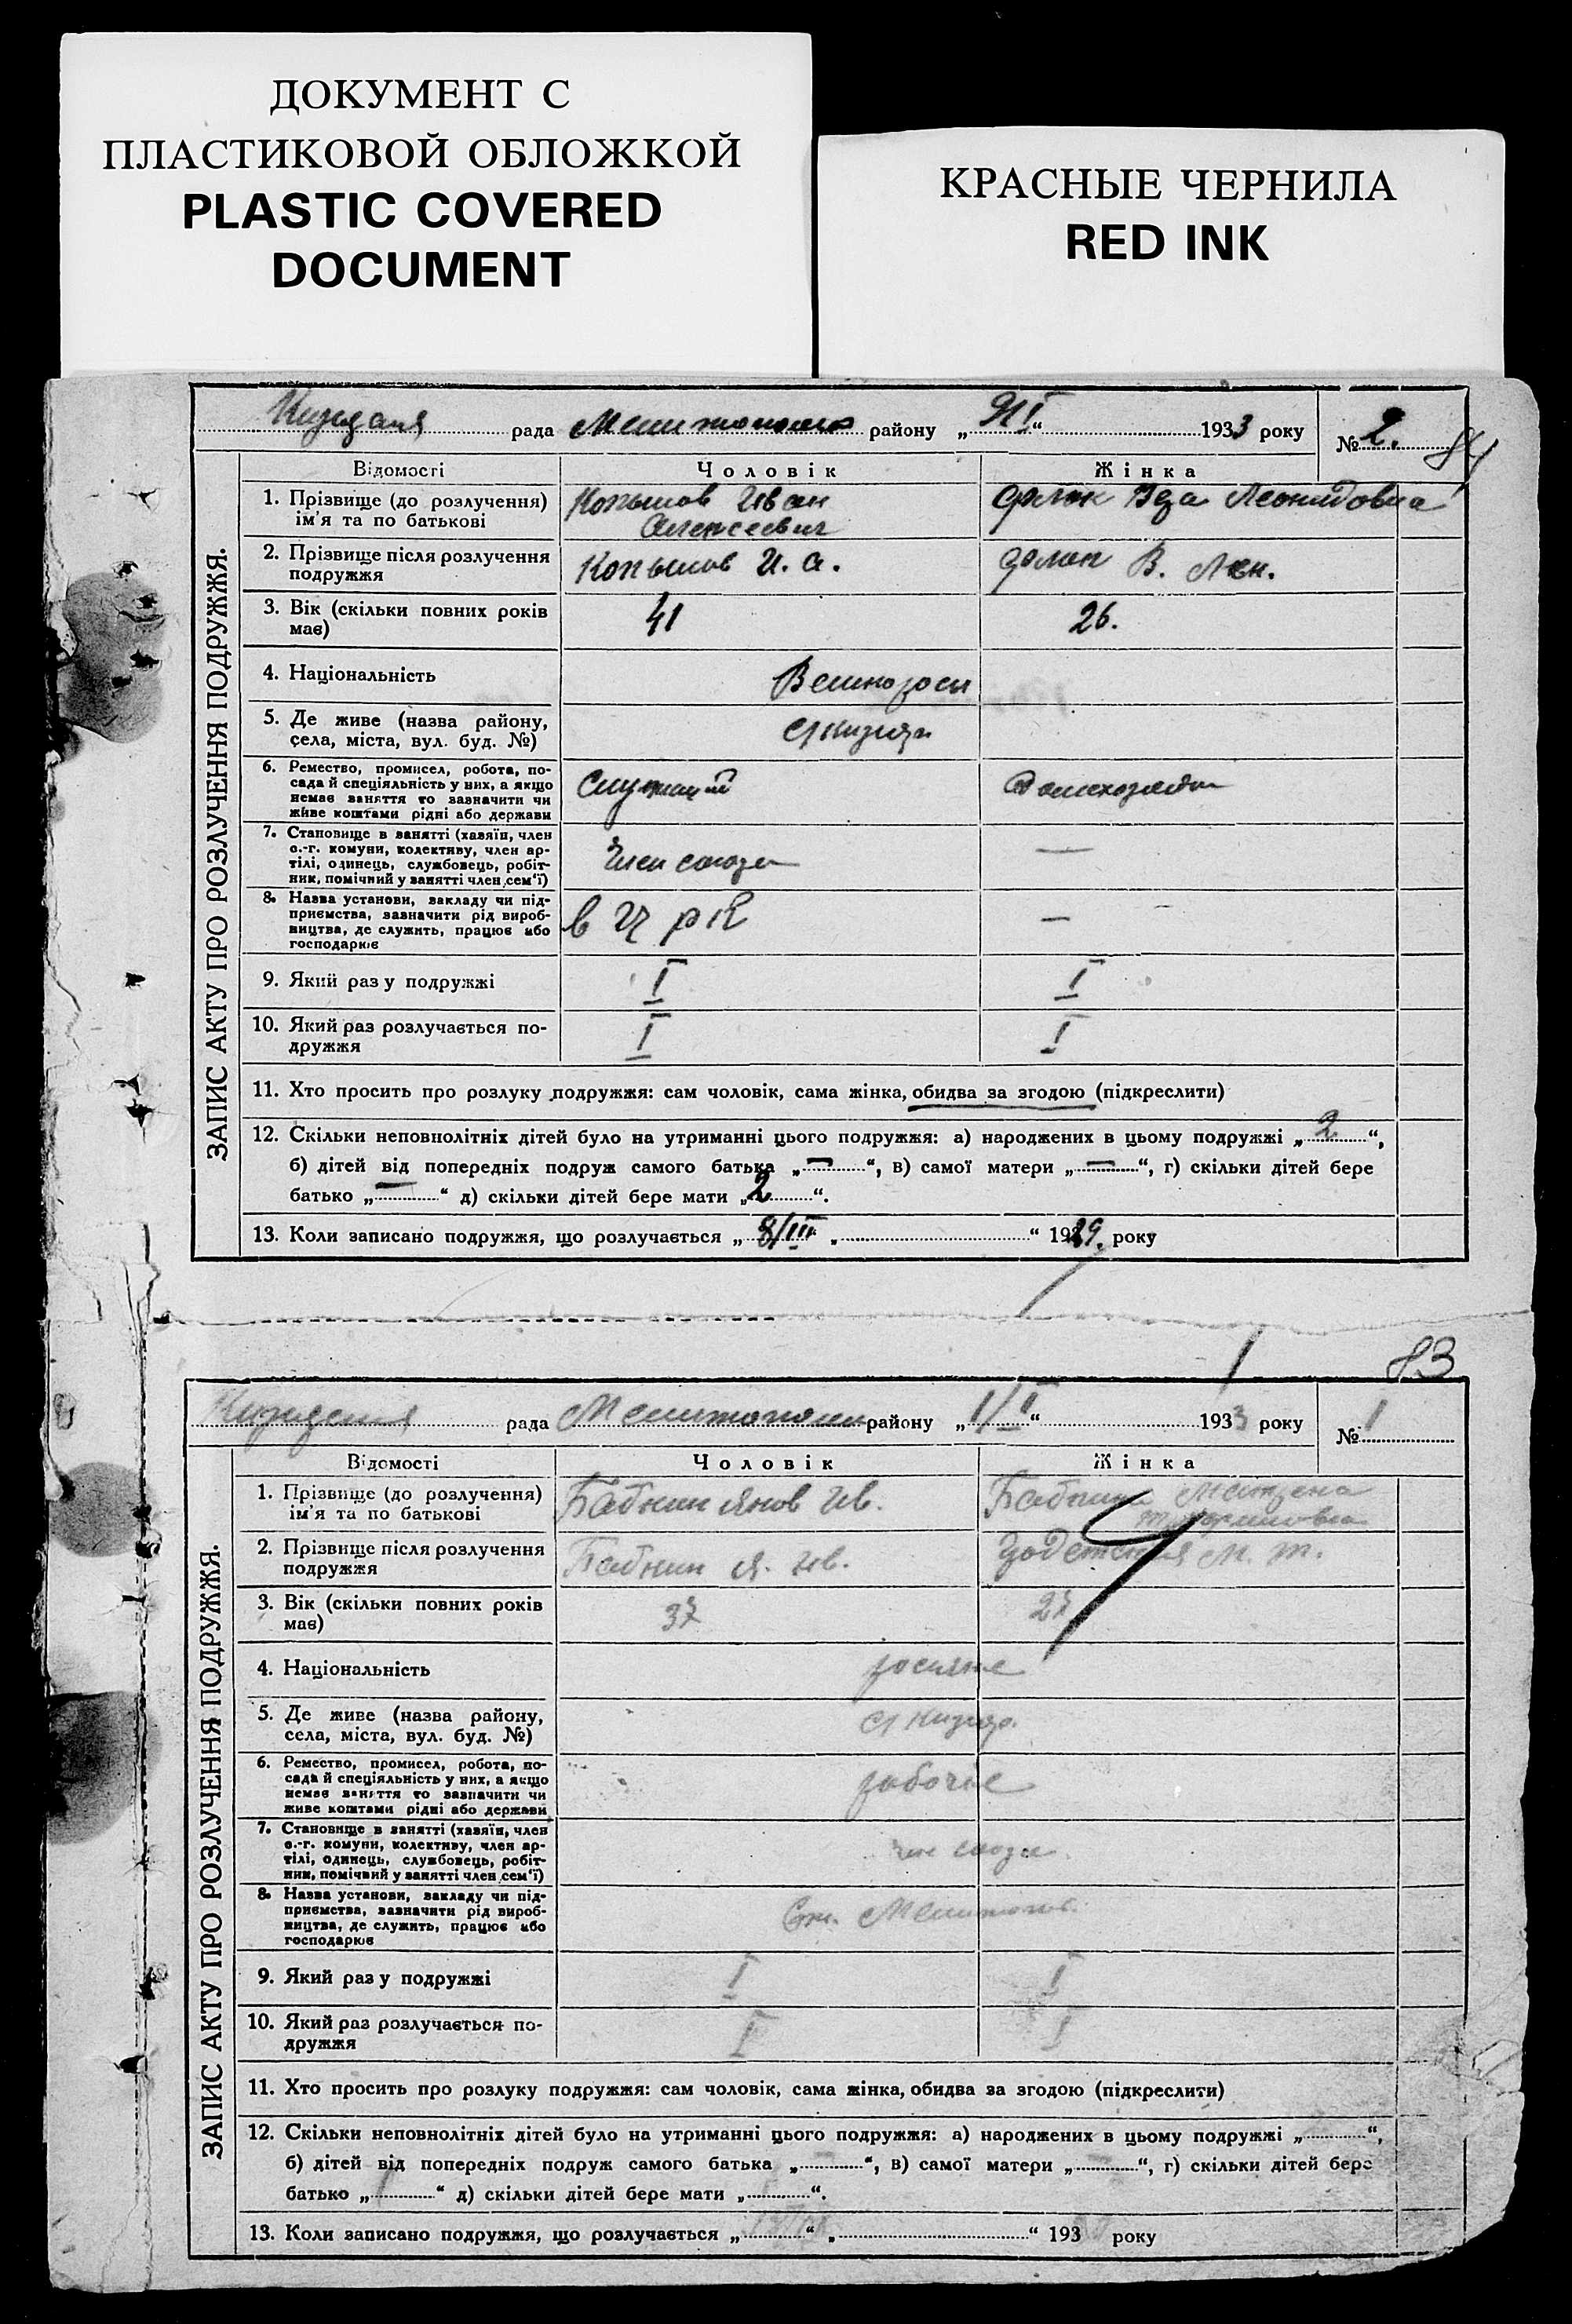 ДОКУМЕНТ С
ПЛАСТИКОВОЙ ОБЛОЖКОЙ
PLASTIC COVERED
DOCUMENT
КРАСНЫЕ ЧЕРНИЛА
RED INK
рада района району „ “ 1933 року
№ 2. 84
ЗАПИС АКТУ ПРО РОЗЛУЧЕННЯ ПОДРУЖЖЯ.
Відомості Чоловік Жінка
1. Прізвище (до розлучення) Копылов Иван Леонидовна
ім'я та по батькові Алексеевич
2. Прізвище після розлучення Копылов И. А. В. Леон.
подружжя
3. Вік (скільки повних років 41 26.
має)
4. Національність Великоросы
5. Де живе (назва району,
села, міста, вул. буд. №)
6. Ремество, промисел, робота, по- Служащий Домохозяйка
сада й спеціяльність у них, а якщо
немає заняття то зазначити чи
живе коштами рідні або держави
7. Становище в занятті (хазяїн, член Член союза —
с.-г. комуни, колективу, член ар-
тілі, одинець, службовець, робіт-
ник, помічний у занятті член сем'ї)
8. Назва установи, закладу чи під- —
приємства, зазначити рід вироб-
ництва, де служить, працює або
господарює
9. Який раз у подружжі I I
10. Який раз розлучається по- I I
дружжя
11. Хто просить про розлуку подружжя: сам чоловік, сама жінка, обидва за згодою (підкреслити)
12. Скільки неповнолітніх дітей було на утриманні цього подружжя: а) народжених в цьому подружжі „ 2 “,
б) дітей від попередніх подруж самого батька „ — “, в) самої матери „ — “, г) скільки дітей бере
батько „ — “ д) скільки дітей бере мати „ 2 “.
13. Коли записано подружжя, що розлучається „ 8/III “ 1929. року
83
рада району „ 1/I “ 1933 року
№ 1
ЗАПИС АКТУ ПРО РОЗЛУЧЕННЯ ПОДРУЖЖЯ.
Відомості Чоловік Жінка
1. Прізвище (до розлучення) Ив.
ім'я та по батькові
2. Прізвище після розлучення Я. Ив. М. Т.
подружжя
3. Вік (скільки повних років 37 27
має)
4. Національність
5. Де живе (назва району,
села, міста, вул. буд. №)
6. Ремество, промисел, робота, по- рабочие
сада й спеціяльність у них, а якщо
немає заняття то зазначити чи
живе коштами рідні або держави
7. Становище в занятті (хазяїн, член союза
с.-г. комуни, колективу, член ар-
тілі, одинець, службовець, робіт-
ник, помічний у занятті член сем'ї)
8. Назва установи, закладу чи під-
приємства, зазначити рід вироб-
ництва, де служить, працює або
господарює
9. Який раз у подружжі I I
10. Який раз розлучається по- I I
дружжя
11. Хто просить про розлуку подружжя: сам чоловік, сама жінка, обидва за згодою (підкреслити)
12. Скільки неповнолітніх дітей було на утриманні цього подружжя: а) народжених в цьому подружжі „ “,
б) дітей від попередніх подруж самого батька „ “, в) самої матери „ “, г) скільки дітей бере
батько „ “ д) скільки дітей бере мати „ “.
13. Коли записано подружжя, що розлучається „ “ „ “ 193 року